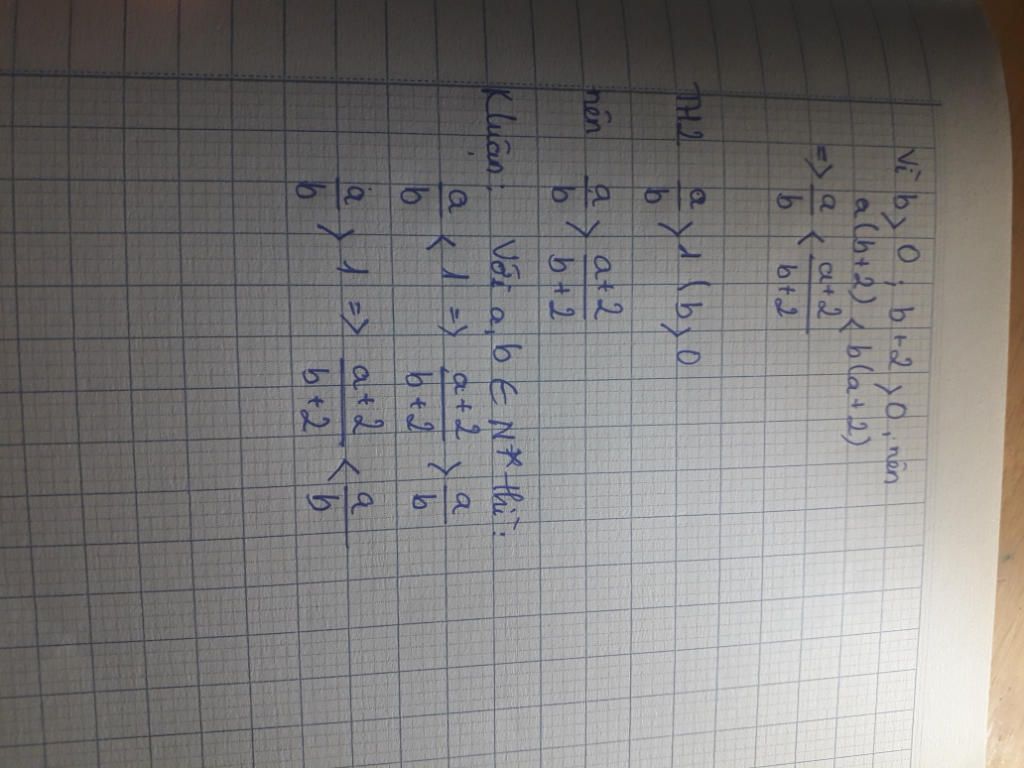 Vì b > 0 ; b + 2 > 0, nên
a(b+2) < b(a+2)
=> a/b < a+2/b+2
TH2 a/b > 1 (b > 0
nên a/b > a+2/b+2
K luận: Với a, b ∈ N* thì:
a/b < 1 => a+2/b+2 > a/b
a/b > 1 => a+2/b+2 < a/b